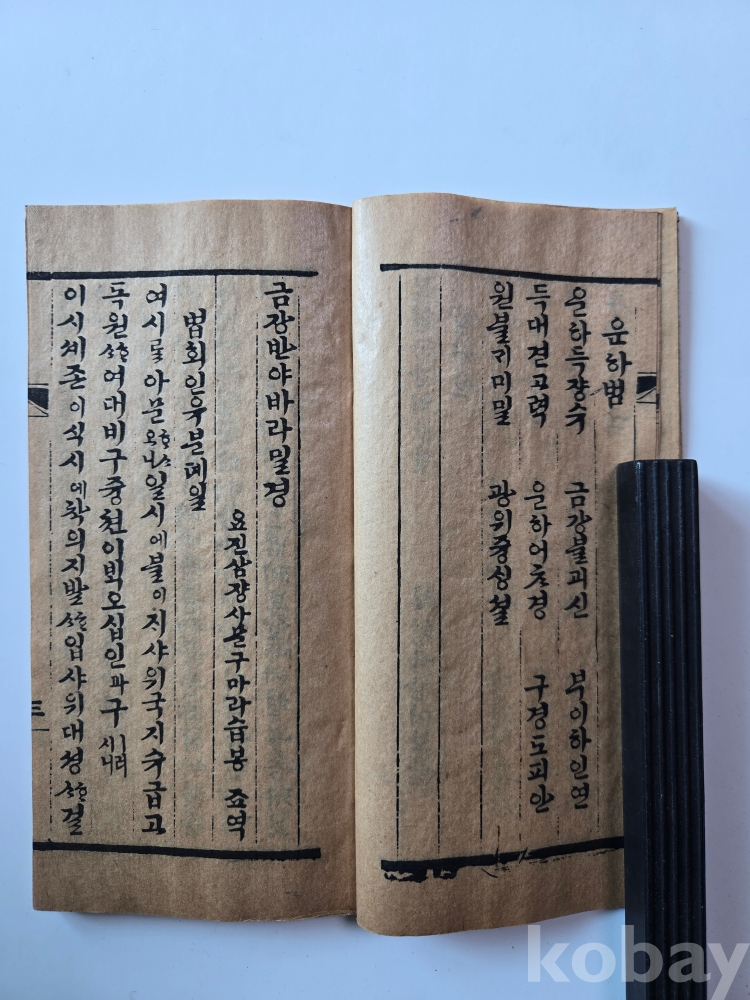 운하범
운하득쟝슈 금강불괴신 부이하인연
득대견고력 운하어촌경 구경도피안
원불 미밀 광위즁생셜
금강반야바라밀경
요진삼쟝사문구마라습봉 죠역
법회인유분뎨일
여시 아문 일시에불이지샤위국지슈급고
독원 여대비구즁쳔이 오십인과구
이시셰존이식시에챡의지발 입샤위대셩 걸
三
kobay